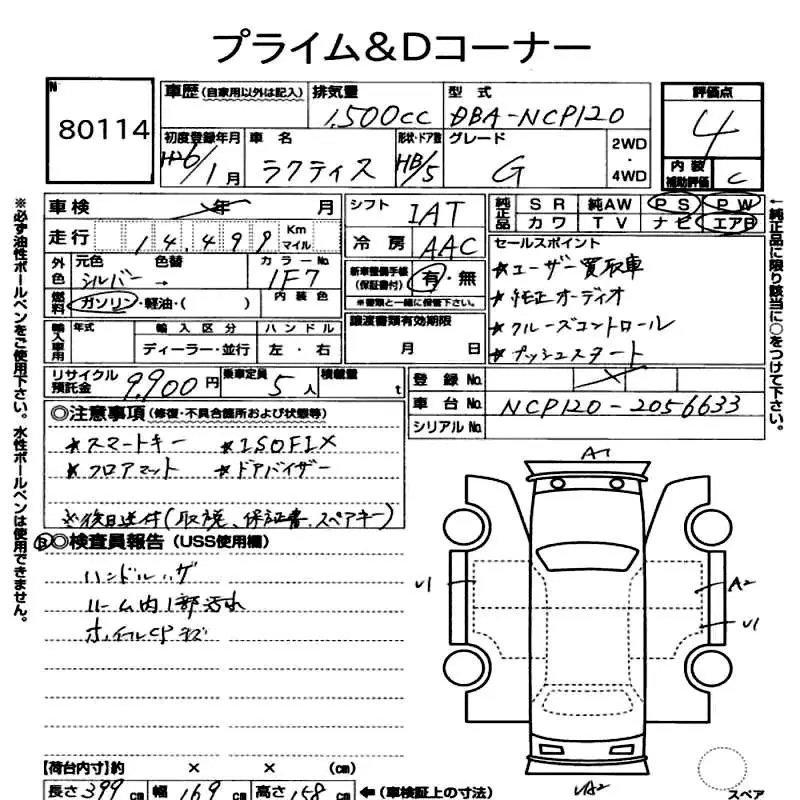 プライム＆Dコーナー
N
80114
車歴 (自家用以外は記入)
排気量
1,500cc
型式
DBA-NCP120
評価点
4
初度登録年月
H26/1月
車名
ラクティス
形状・ドア数
HB/5
グレード
G
2WD
・
4WD
内装補助評価
C
※必ず油性ボールペンをご使用下さい。水性ボールペンは使用できません。
←純正品に限り該当に○をつけて下さい。
車検 年 月
走行 14,499 Km マイル
外色 元色 色替 カラーNo.
シルバー → 1F7
燃料 ガソリン・軽油・( ) 内装色
輸入車用 年式 輸入区分 ハンドル
ディーラー・並行 左・右
リサイクル預託金 9,900円 乗車定員 5人 積載量 t
シフト IAT
冷房 AAC
新車整備手帳(保証書付) 有・無
※書類と一緒に保管下さい。
譲渡書類有効期限
月 日
純正品 SR 純AW PS PW
カワ TV ナビ エアB
セールスポイント
★ユーザー買取車
★純正オーディオ
★クルーズコントロール
★プッシュスタート
登録No.
車台No. NCP120-2056633
シリアルNo.
◎注意事項 (修復・不具合箇所および状態等)
★スマートキー ★ISOFIX
★フロアマット ★ドアバイザー
※後日送付(取説、保証書、スペアキー)
◎検査員報告 (USS使用欄)
ハンドルハゲ
ルーム内1部汚れ
ホイルCPキズ
A1
U1
A2
U1
UA2
スペア
【荷台内寸】約 × × (cm)
長さ 399 cm 幅 169 cm 高さ 158 cm ←(車検証上の寸法)